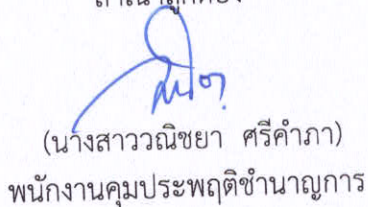 (นางสาววณิชยา ศรีคำภา)
พนักงานคุมประพฤติชำนาญการ